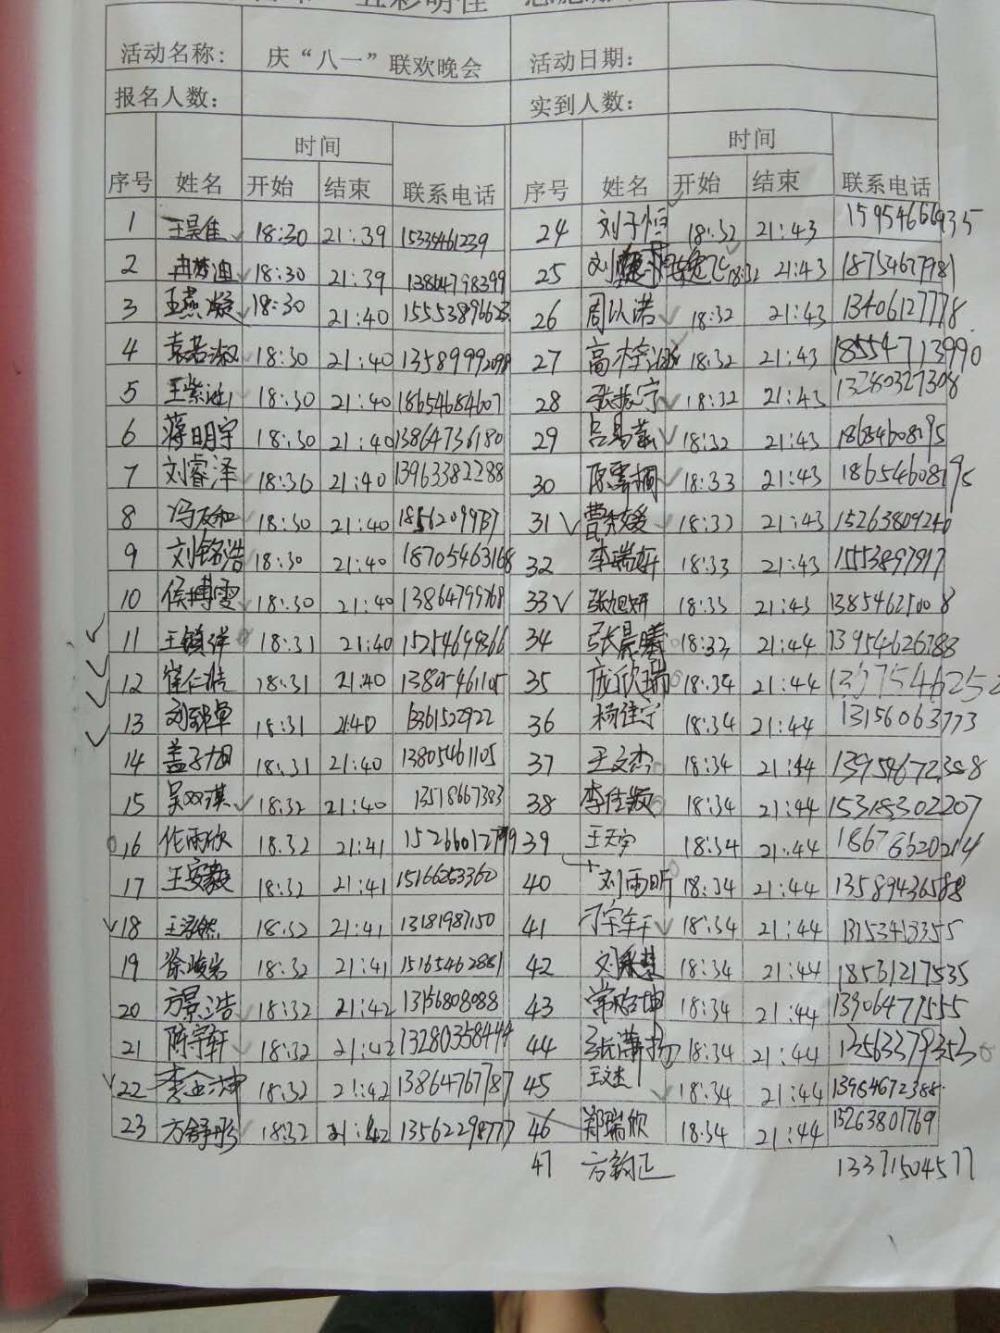 活动名称: 庆“八一”联欢晚会 活动日期:
报名人数: 实到人数:
时间 时间
序号 姓名 开始 结束 联系电话 序号 姓名 开始 结束 联系电话
1 18:30 21:39 15335461239 24 刘子恒 18:32 21:43 15954666935
2 冉梦迪 18:30 21:39 13864798399 25 刘 18:32 21:43 18754677981
3 王燕凝 18:30 21:40 26 周以诺 18:32 21:43 13406127778
4 袁若淑 18:30 21:40 13589992098 27 高梓涵 18:32 21:43 18554713990
5 王紫池 18:30 21:40 18654684607 28 张振宁 18:32 21:43 13280327308
6 蒋明宇 18:30 21:40 13864736180 29 吕易蓁 18:32 21:43 18654608195
7 刘睿泽 18:30 21:40 13963382288 30 18:33 21:43 18654608195
8 冯友和 18:30 21:40 31 曹 18:33 21:43 15263809240
9 刘铭浩 18:30 21:40 18705463168 32 李瑞妍 18:33 21:43 1553897917
10 侯博雯 18:30 21:40 13864799768 33 张旭妍 18:33 21:43 13854621008
11 王镇洋 18:31 21:40 15254699366 34 张晨曦 18:33 21:44 13954626388
12 崔仁喆 18:31 21:40 13805461105 35 庞欣瑞 18:34 21:44 13375546252
13 刘 卓 18:31 21:40 13361522922 36 杨佳宁 18:34 21:44 13156063773
14 盖子旭 18:31 21:40 13805461105 37 王文杰 18:34 21:44 13954672388
15 吴双淇 18:32 21:40 13518667383 38 李佳颖 18:34 21:44 15318302207
16 任雨欣 18:32 21:41 39 王天宇 18:34 21:44 18678620214
17 王安毅 18:32 21:41 15166253360 40 刘雨昕 18:34 21:44 13589436588
18 王泓然 18:32 21:41 13181987150 41 18:34 21:44 13153413355
19 徐峻岩 18:32 21:41 15165462881 42 刘 18:34 21:44 18531217535
20 方景浩 18:32 21:42 13156808088 43 常皓坤 18:34 21:44 13906477555
21 陈宇轩 18:32 21:42 13280358444 44 张潇扬 18:34 21:44 13563379353
22 李 坤 18:32 21:42 13864767787 45 王文杰 18:34 21:44 13954672388
23 方舒彤 18:32 21:42 13562298777 46 郑瑞欣 18:34 21:44 15263801769
47 方韵正 13371504577